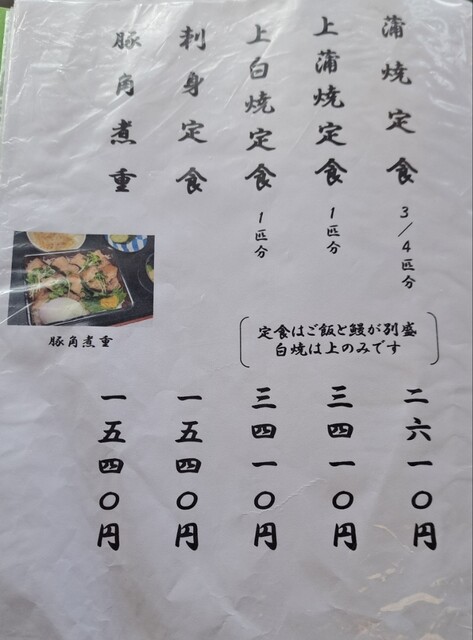 蒲焼定食 3/4匹分
二六一〇円
上蒲焼定食 1匹分
三四一〇円
上白焼定食 1匹分
三四一〇円
刺身定食
一五四〇円
豚角煮重
一五四〇円
定食はご飯と鰻が別盛
白焼は上のみです
豚角煮重